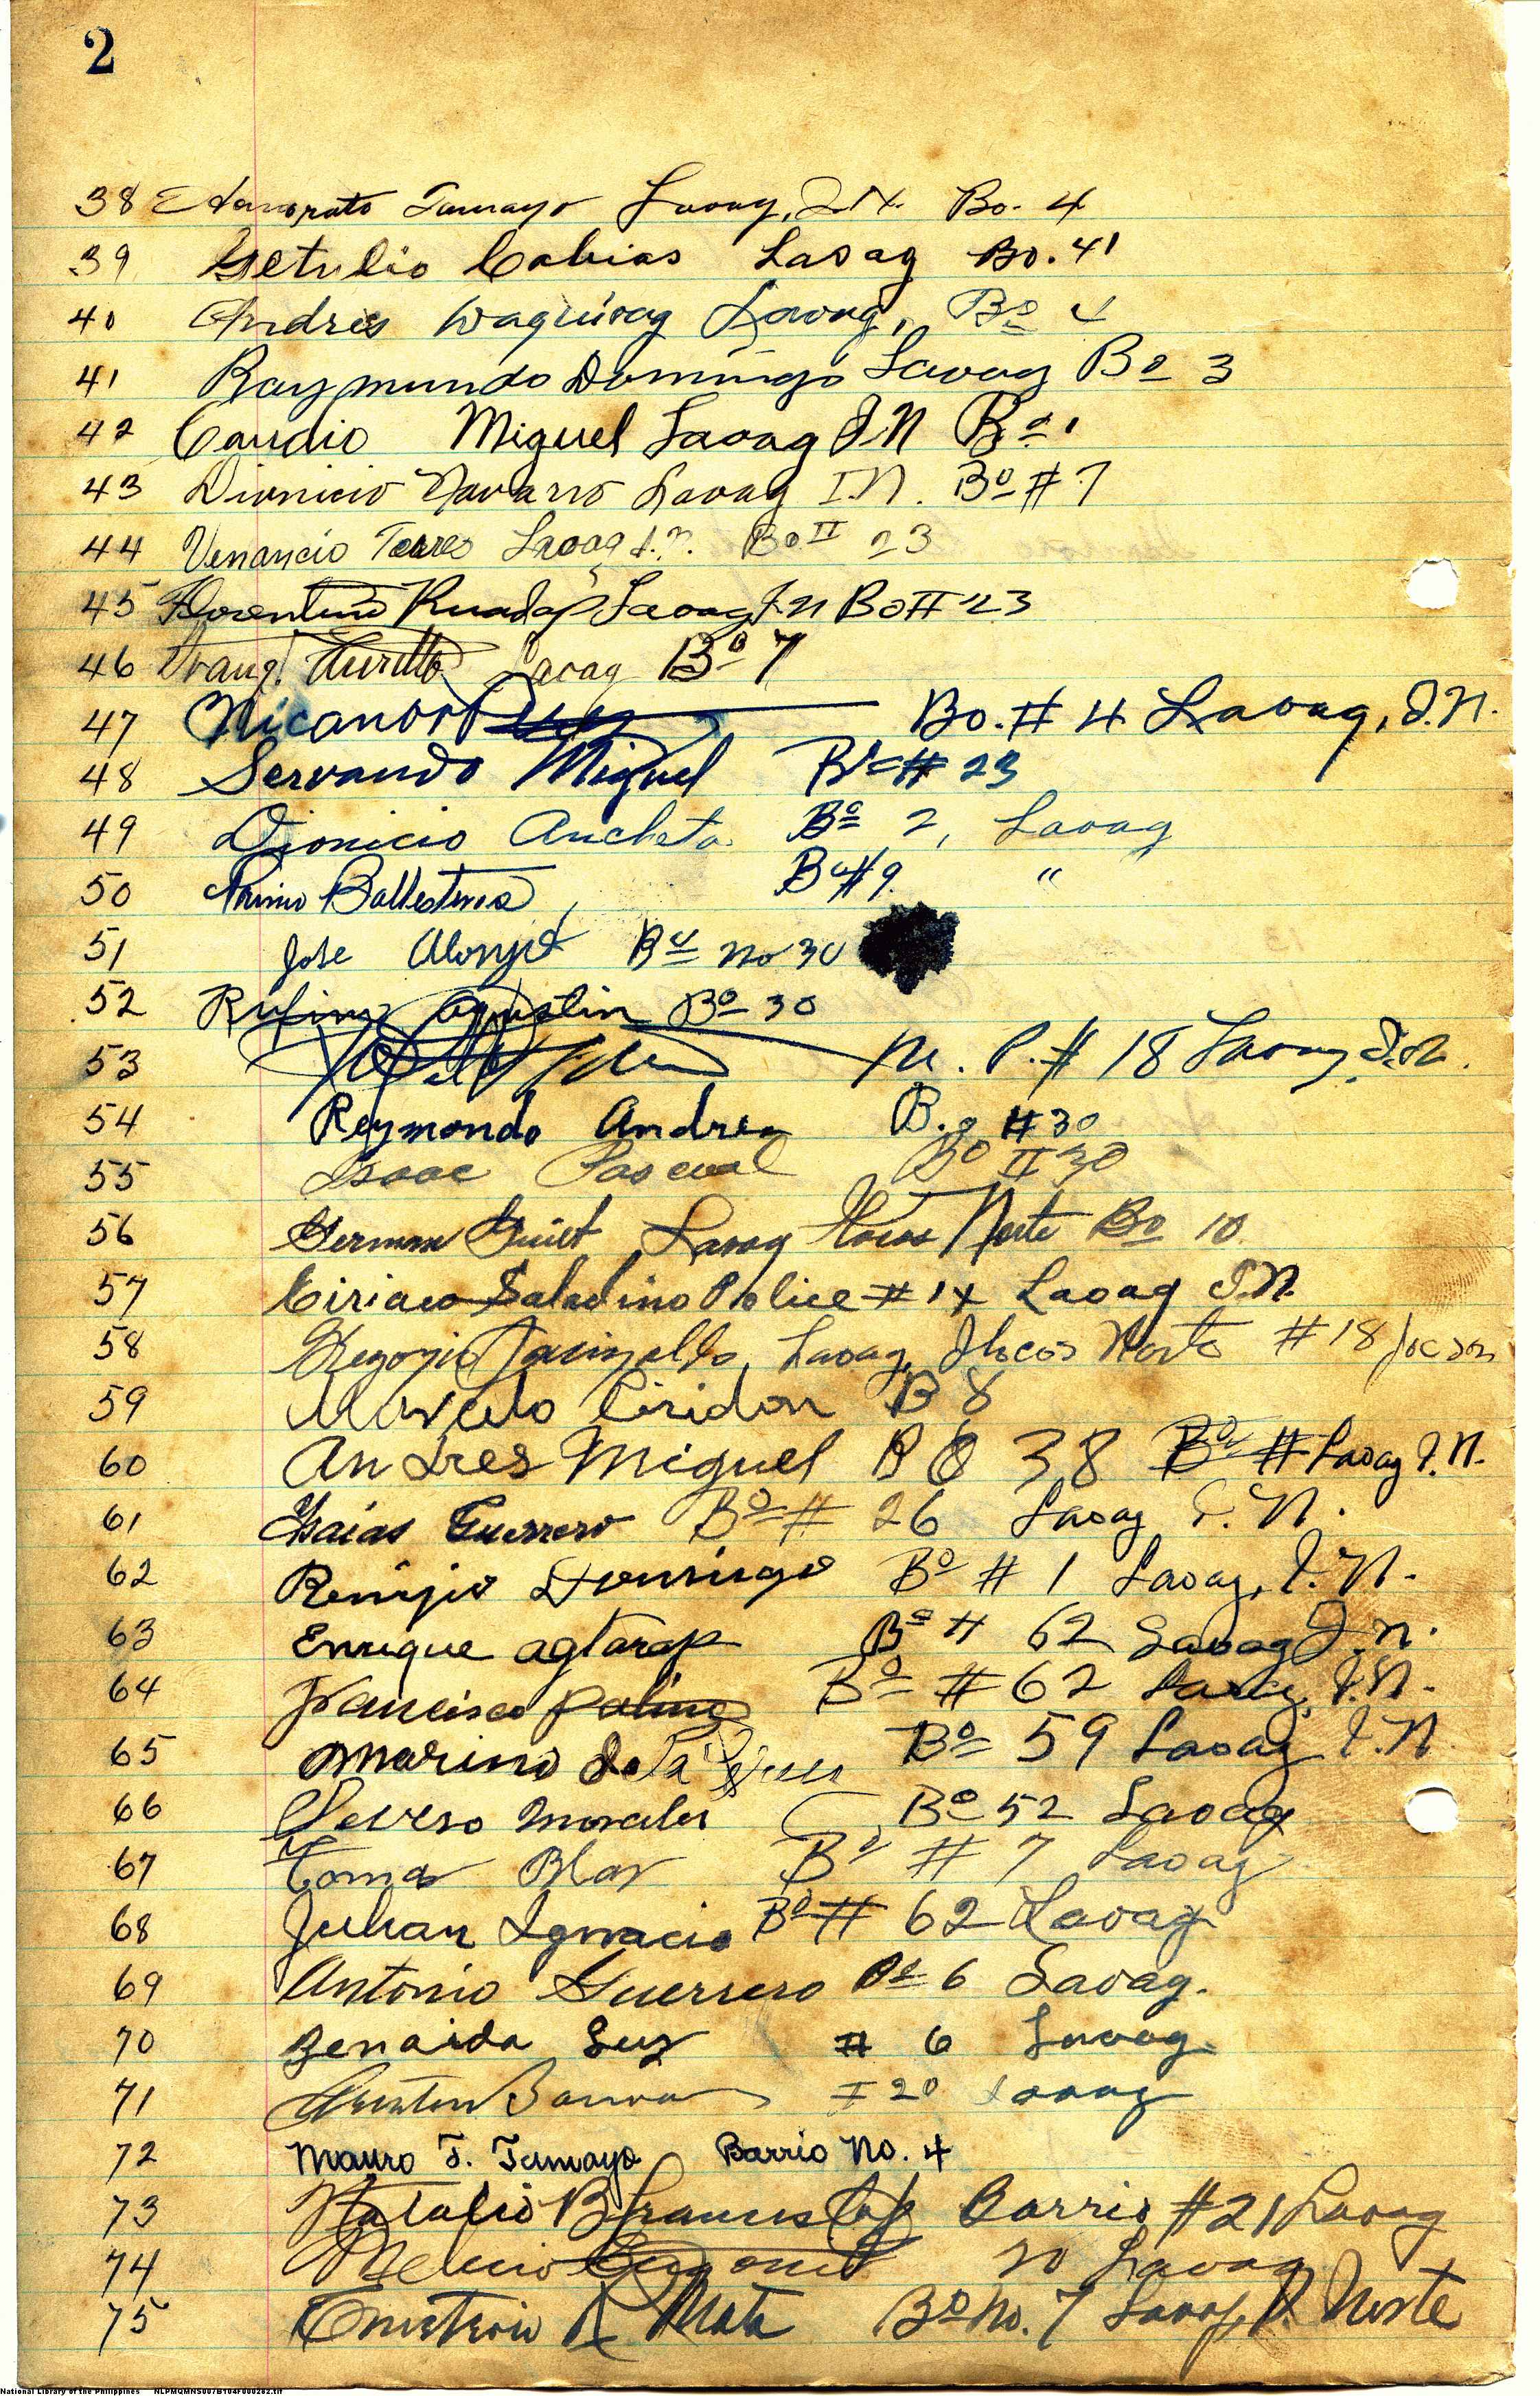 2
38 Tamayo Laoag, I.N. Bo. 4
39 Getulio Cabias Laoag Bo. 41
40 Andres Waguiwag Laoag, Bo 4
41 Raymundo Domingo Laoag Bo 3
42 Caudio Miguel Laoag I N Bo 1
43 Dionicio Navarro Laoag I.N. Bo # 7
44 Venancio Laoag I.N. Bo II 23
45 Florentino Laoag I N Bo II 23
46 Laoag Bo 7
47 Nicanor Bo. # 4 Laoag, I.N.
48 Servando Miguel Bo # 23
49 Dionicio Ancheta Bo 2, Laoag
50 Primo Ballesteros Bo #9 "
51 Jose Bo No 30
52 Rufino Agustin Bo 30
53 M. P. # 18 Laoag I.N.
54 Reymondo Andres B.o #30
55 Isaac Pascual Bo II 30
56 German Laoag Ilocos Norte Bo 10
57 Ciriaco Saladino Police # 14 Laoag I.N.
58 Gregorio Laoag, Ilocos Norte # 18
59 Marcelo Ciridon B 8
60 Andres Miguel B O 38 Bo # Laoag I.N.
61 Isaias Guerrero Bo # 26 Laoag I.N.
62 Remijio Domingo Bo # 1 Laoag, I.N.
63 Enrique Agtarap Bo # 62 Laoag I.N.
64 Francisco Bo # 62 Laoag, I.N.
65 Marino de la Bo 59 Laoag I.N.
66 Morales Bo 52 Laoag
67 Tomas Blas Bo # 7 Laoag
68 Julian Ignacio Bo # 62 Laoag
69 Antonio Guerrero Bo 6 Laoag.
70 Zenaida Luz # 6 Laoag
71 20 Laoag
72 Mauro T. Tamayo Barrio No. 4
73 Natalio B Barrio #21 Laoag
74 Laoag
75 Mata Bo No. 7 Laoag, I. Norte
National Library of the Philippines NLPMQMNS007B104F000282.tif